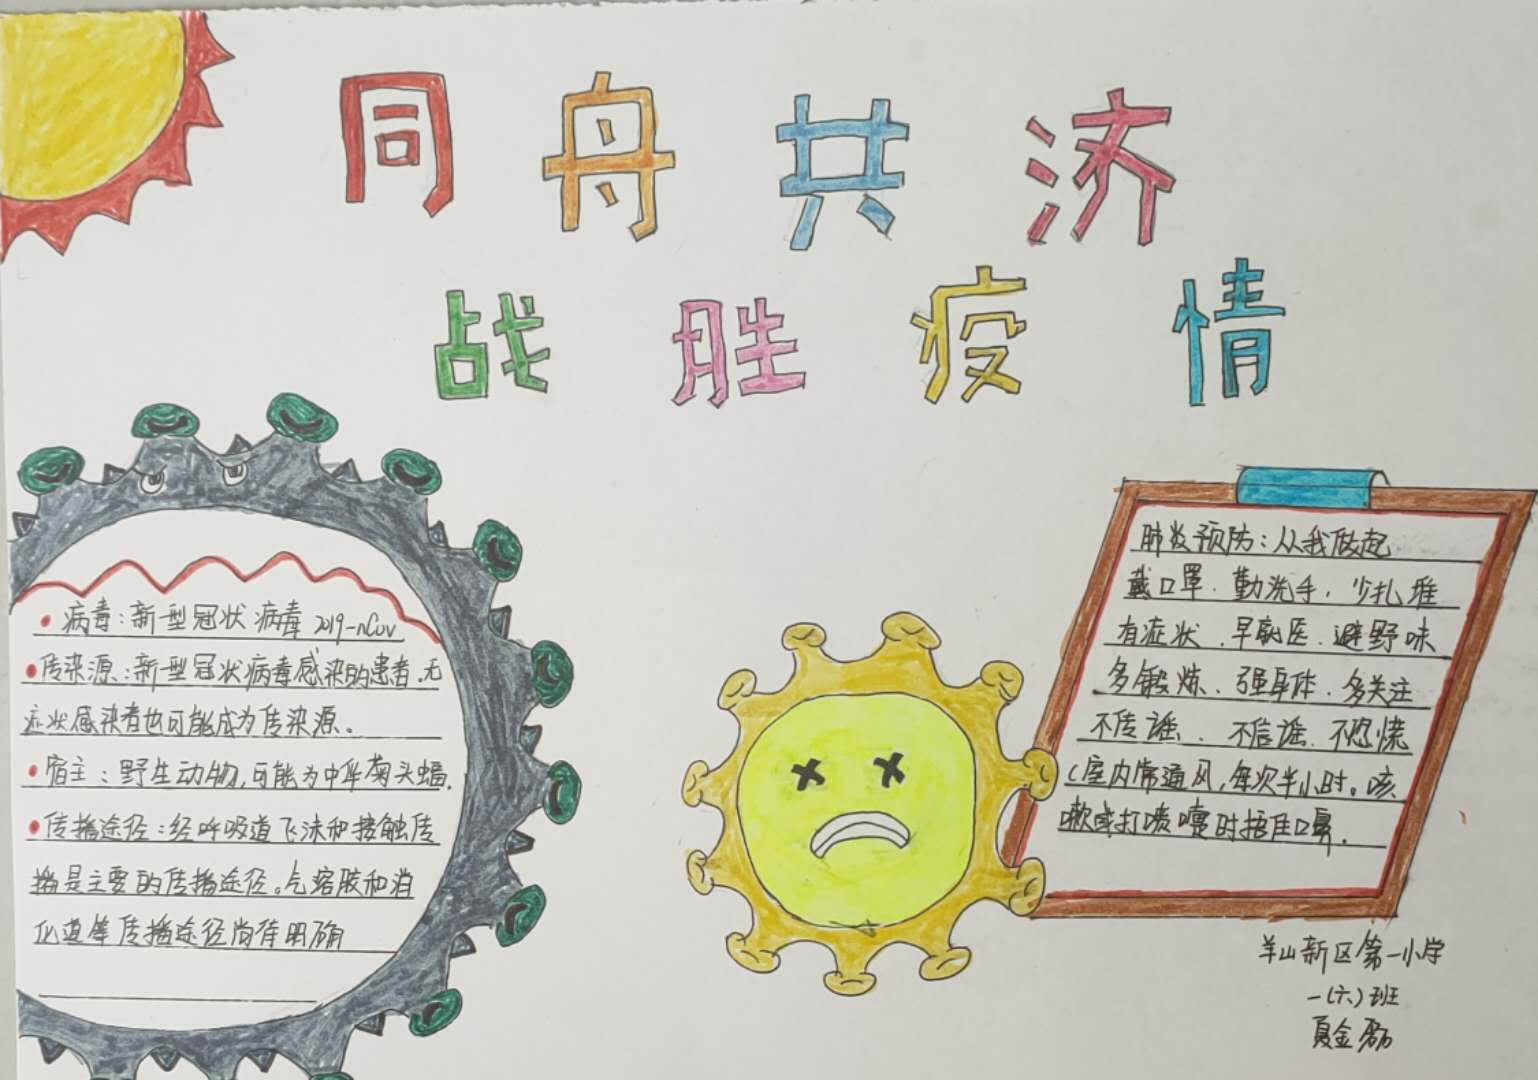 同舟共济
战胜疫情
病毒：新型冠状病毒 2019-nCov
传染源：新型冠状病毒感染的患者。无
症状感染者也可能成为传染源。
宿主：野生动物，可能为中华菊头蝠。
传播途径：经呼吸道飞沫和接触传
播是主要的传播途径。气溶胶和消
化道等传播途径尚待明确
肺炎预防：从我做起
戴口罩．勤洗手，少扎堆
有症状．早就医．避野味
多锻炼、强身体．多关注
不传谣、不信谣．不恐慌
（室内常通风，每次半小时。咳
嗽或打喷嚏时捂住口鼻．
羊山新区第一小学
一（六）班
夏金